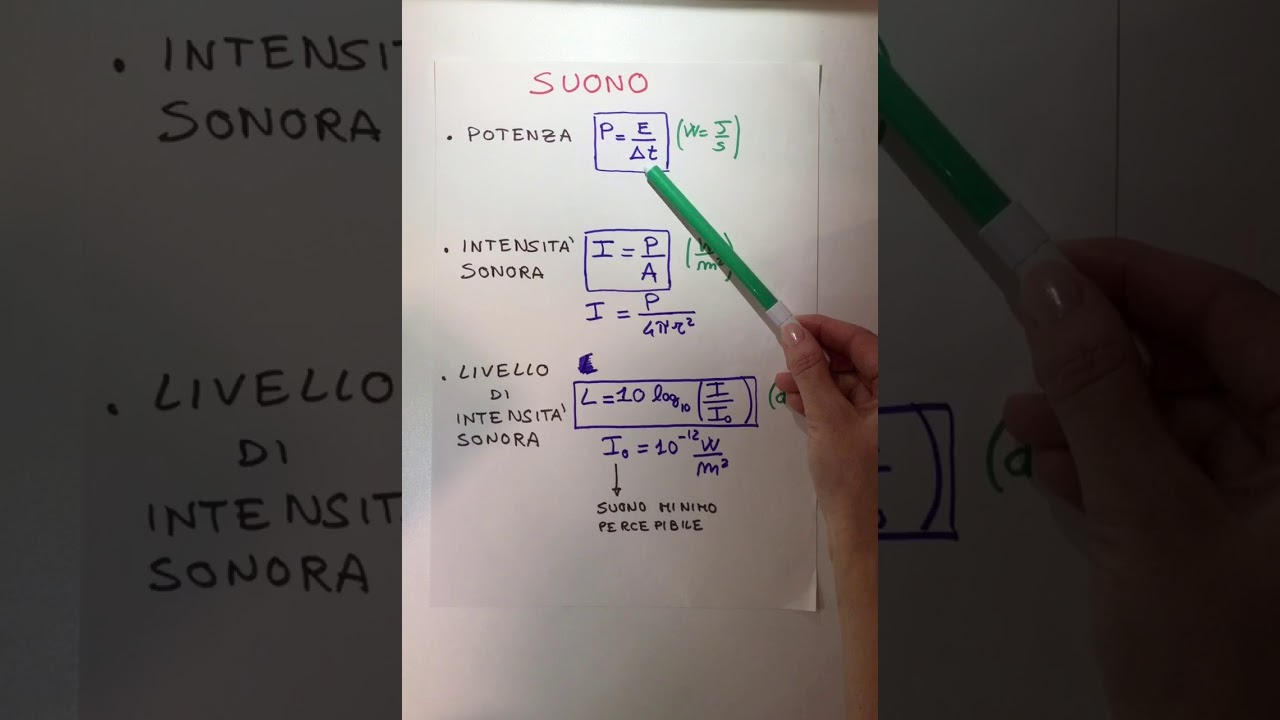 SUONO
• POTENZA P = E/Δt (W = J/s)
• INTENSITA' I = P/A (W/m²)
SONORA
I = P/4πr²
• LIVELLO
DI
INTENSITA'
SONORA
L = 10 log₁₀ (I/I₀) (d
I₀ = 10⁻¹² W/m²
SUONO MINIMO
PERCEPIBILE